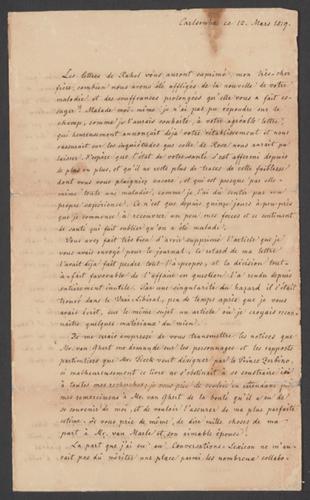 Carlsrouhe ce 12. Mars 1819.
Les lettres de Rahel vous auront exprimé, mon très-cher
frère, combien nous avons été affligés de la nouvelle de votre
maladie et des souffrances prolongées qu'elle vous a fait es-
suyer! Malade moi-même je n'ai pas pu répondre sur le
champ, comme je l'aurais souhaité, à votre agréable lettre,
qui heureusement annonçait déjà votre rétablissement et nous
rassurait sur les inquiétudes que celle de Rose nous aurait pu
laisser. J'espère que l'état de votre santé s'est affermi depuis
de plus en plus, et qu'il ne reste plus de traces de cette faiblesse
dont vous vous plaigniez encore et qui est presque par elle-
même toute une maladie, comme je l'ai dû sentir par ma
propre expérience. Ce n'est que depuis quinze jours à peu-près
que je commence à recouvrer un peu mes forces et ce sentiment
de santé qui fait oublier qu'on a été malade.
Vous avez fait très bien d'avoir supprimé l'article que je
vous avais envoyé pour le journal, le retard de ma lettre
l'avait déjà fait perdre tout l'à-propos, et la décision tout-
à-fait favorable de l'affaire en question l'a rendu depuis
entièrement inutile. Par une singularité du hazard il s'était
trouvé dans le Vrai Libéral, peu de temps après que je vous
avais écrit, sur le même sujet un article où je croyais recon-
naître quelques matériaux du mien.
Je me serais empressé de vous transmettre les notices que
Mr. van Ghert me demande sur les personnages et les rapports
particuliers que Mr. Tieck veut désigner par le Prince Zerbino,
si malheureusement ce livre ne s'obstinait à se soustraire ici
à toutes mes recherches; je vous prie de vouloir en attendant
mes remercimens à Mr. van Ghert de la bonté qu'il a eu de
se souvenir de moi, et de vouloir l'assurer de ma plus parfaite
estime. Je vous prie de même, de dire mille choses de ma
part à Mr. van Marle et son aimable épouse!
La part que j'ai eu au Conversations-Lexicon ne m'au-
rait pas dû mériter une place parmi les nombreux collabo-